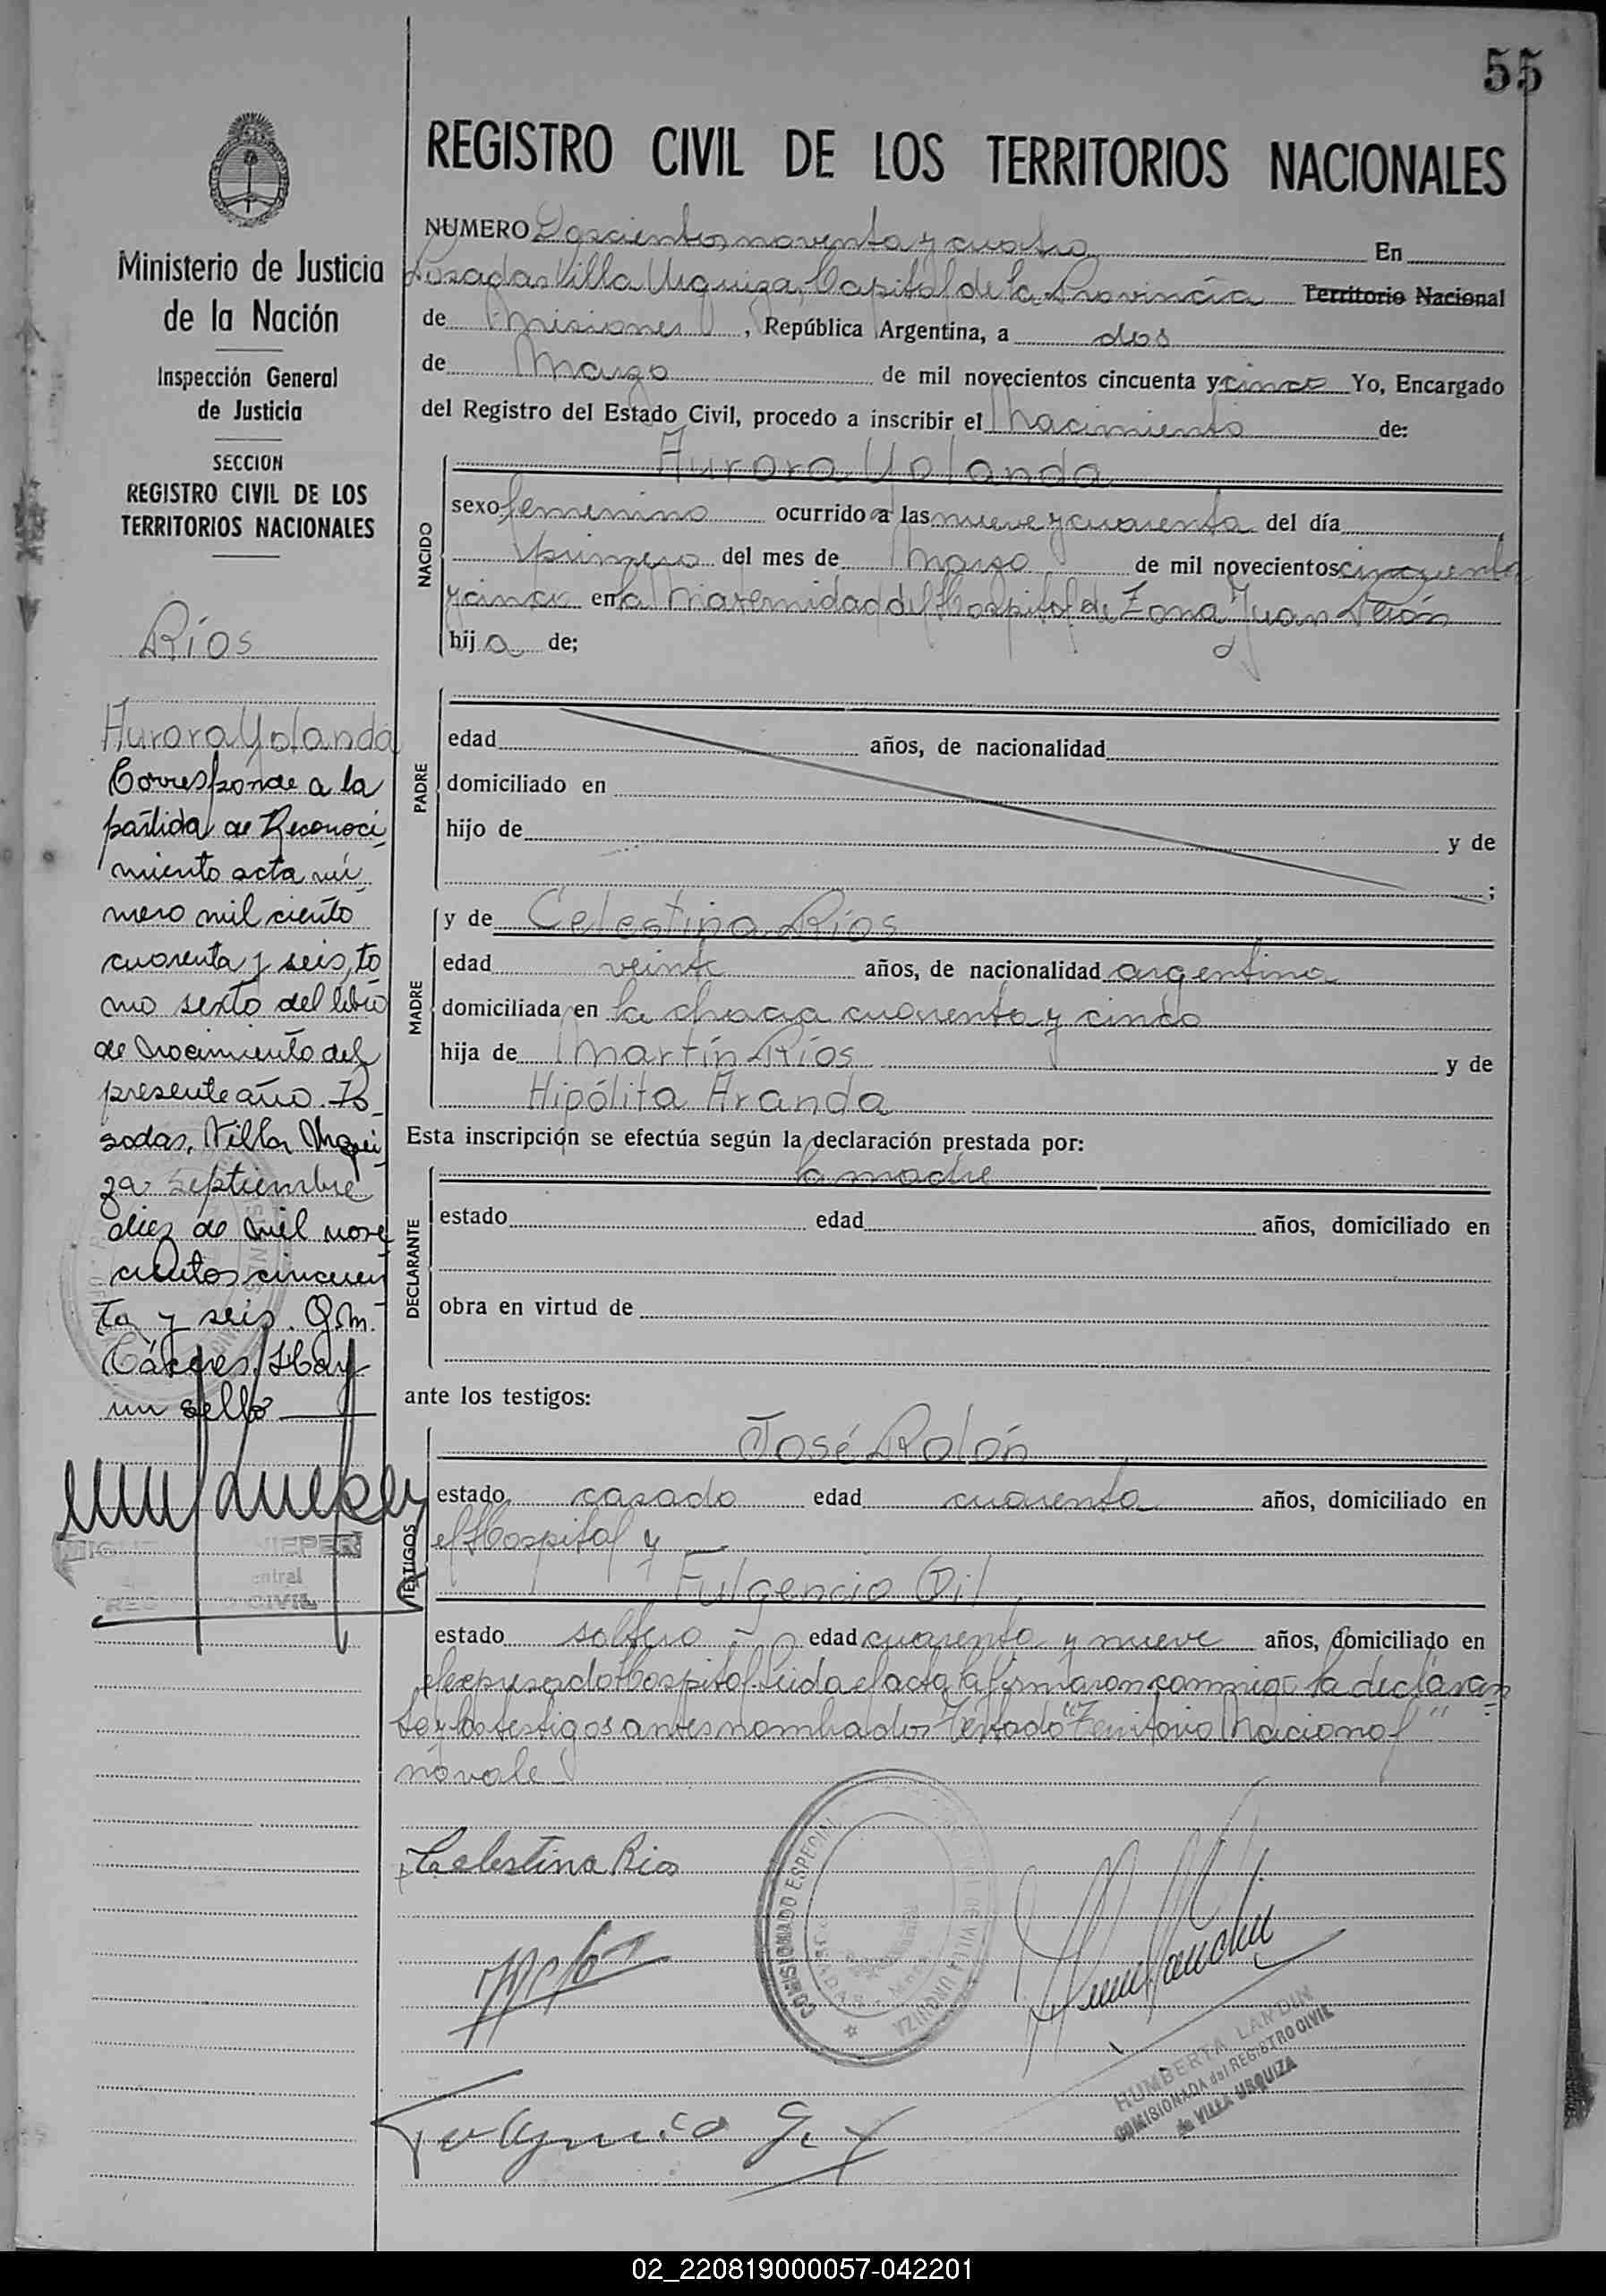 55
Ministerio de Justicia
de la Nación
Inspección General
de Justicia
SECCION
REGISTRO CIVIL DE LOS
TERRITORIOS NACIONALES
Ríos
Aurora Yolanda
Corresponde a la
partida de Reconoci
miento acta nú
mero mil ciento
cuarenta y seis, to
mo sexto del libro
de Nacimiento del
presente año. Po
sadas, Villa Urqui
za septiembre
diez de mil nove
cientos cincuen
ta y seis.
Cáceres. Hay
un sello
REGISTRO CIVIL DE LOS TERRITORIOS NACIONALES
NUMERO Doscientos noventa y cuatro En
Posadas Villa Urquiza, Capital de la Provincia Territorio Nacional
de Misiones, República Argentina, a dos
de Marzo de mil novecientos cincuenta y cinco Yo, Encargado
del Registro del Estado Civil, procedo a inscribir el Nacimiento de:
NACIDO
Aurora Yolanda
sexo femenino ocurrido a las nueve y cuarenta del día
primero del mes de Marzo de mil novecientos cincuenta
y cinco en la Maternidad del Hospital de Zona Juan Perón
hija de;
PADRE
edad años, de nacionalidad
domiciliado en
hijo de y de
;
MADRE
y de Celestina Ríos
edad veinte años, de nacionalidad argentina
domiciliada en la chacra cuarenta y cinco
hija de Martín Ríos y de
Hipólita Aranda
Esta inscripción se efectúa según la declaración prestada por:
DECLARANTE
la madre
estado edad años, domiciliado en
obra en virtud de
ante los testigos:
TESTIGOS
José Rolón
estado casado edad cuarenta años, domiciliado en
el Hospital y
Fulgencio Gil
estado soltero edad cuarenta y nueve años, domiciliado en
el expresado Hospital. Leida el acta la firmaron conmigo la declaran
te y los testigos antes nombrados Testado "Territorio Nacional"
no vale
Celestina Rios
COMISIONADO ESPECIAL
VILLA URQUIZA
HUMBERTA LANDIN
COMISIONADA del REGISTRO CIVIL
de VILLA URQUIZA
02_220819000057-042201